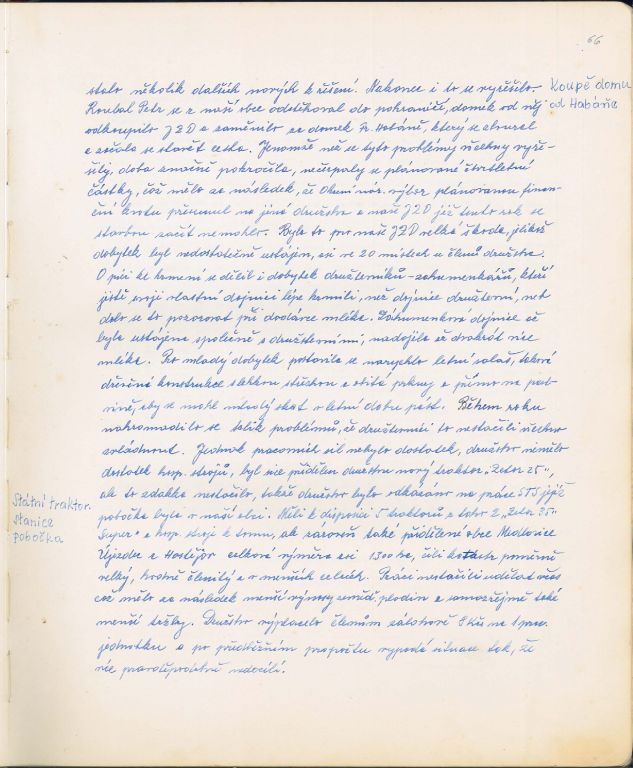 66
stalo několik dalších nových k řešení. Nakonec i to se vyřešilo.
Koupě domu
od Habáňa
Roubal Petr se z naší obce odstěhoval do pohraničí, domek od něj
odkoupilo JZD a zaměnilo za domek p. Habáně, který se zboural
a začala se stavět cesta. Jenomže než se tyto problémy všechny vyře-
šily, doba značně pokročila, nečerpaly se plánované čtvrtletní
částky, což mělo za následek, že Okr. nár. výbor plánovanou finan-
ční kvotu přesunul na jiné družstvo a naše JZD již tento rok se
stavbou začít nemohlo. Bylo to pro naše JZD velká škoda, jelikož
dobytek byl nedostatečně ustájen, asi ve 20 místech u členů družstva.
O péči ke krmení se dělil i dobytek družstevníků - záhumenkářů, kteří
jistě svoji vlastní dojnici lépe krmili, než dojnice družstevní, neb
dalo se to pozorovat při dodávce mléka. Záhumenkové dojnice ač
byly ustájeny společně s družstevními, nadojilo se dvakrát více
mléka. Pro mladý dobytek postavila se narychlo letní salaš, taková
dřevěná konstrukce s lehkou střechou a obitá prkny a přímo na past-
vině, aby se mohl mladý skot v letní dobu pást. Během roku
nahromadilo se tolik problémů, že družstevníci to nestačili všechno
zvládnout. Jednak pracovních sil nebylo dostatek, družstvo nemělo
dostatek hosp. strojů, byl sice přidělen družstvu nový traktor „Zetor 25",
Státní traktor.
stanice
pobočka
ale to zdaleka nestačilo, takže družstvo bylo odkázáno na práce STS jejíž
pobočka byla v naší obci. Měli k disposici 5 traktorů a toho 2 „Zetor 35"
Super" a hosp. stroji k tomu, ale zároveň také přidělené obce Medlovice
Újezdec a Hostějov celková výměra asi 1300 ha, čili katastr poměrně
velký, hodně členitý a v menších celcích. Práci nestačili udělat včas
což mělo za následek menší výnosy zeměd. plodin a samozřejmě také
menší tržby. Družstvo vyplácelo členům zálohově 8 Kčs na 1 prac.
jednotku a po předběžném propočtu vypadá situace tak, že
více pravděpodobně nedocílí.